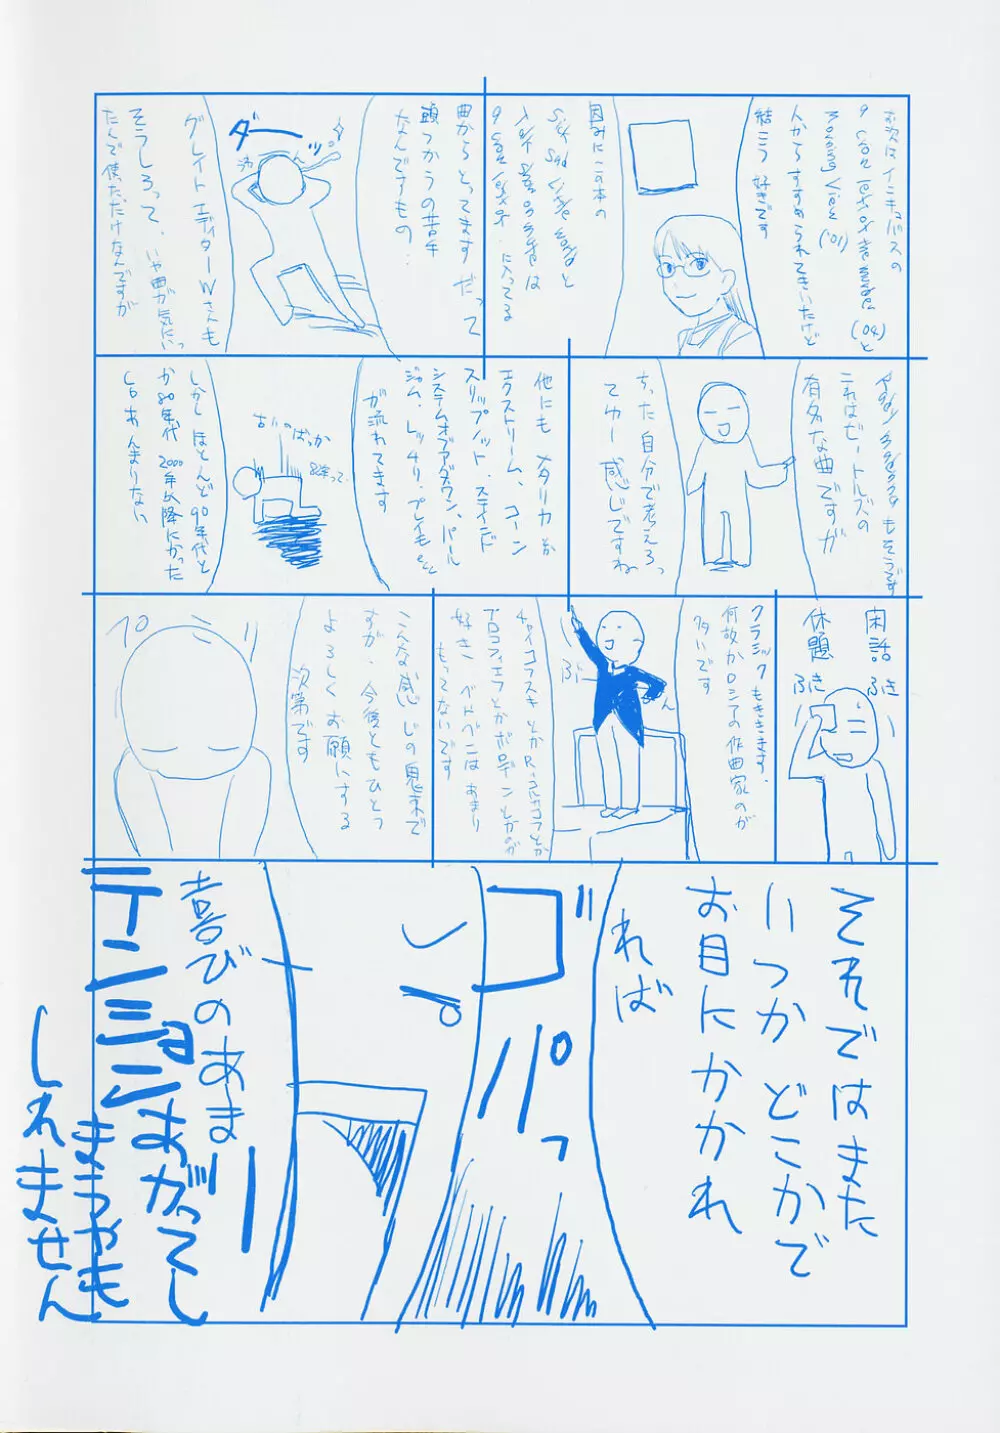 お次はインキュバスの
('04)と
('01)
人からすすめられてきいたけど
結こう好きです
因みにこの本の
Sick Sad
と
は
に入ってる
曲からとってます だって
頭つかうの苦手
なんですもの…
ダーッ
グレイトエディターWさんも
そうしろって、いや曲が気にいっ
たんで使ただけなんですが
もそうです
これはビートルズの
有名な曲ですが
ちった自分で考えろっ
てゆー感じですね
他にもメタリカか
エクストリーム、コーン
スリップノット、ステインド
システムオブアダウン、パール
ジャム、レッチリ、プレイも etc
が流れてます
古いのばっか
しかしほとんど90年代と
か80年代 2000年以降にかった
しかあんまりない
閑話
休題
ふき
ふき
クラシックもききます、
何故かロシアの作曲家のが
多いです
チャイコフスキとかR=コルサコフとか
プロコフィエフとかボロディンとかのが
好き ベトベンはあまり
もってないです
こんな感じの鬼末で
すが、今後ともひとつ
よろしくお願いする
次第です
ペコリ
それではまた
いつかどこかで
お目にかかれ
れば
ガバっ
喜びのあまりー
テンションあがってし
まうかも
しれません